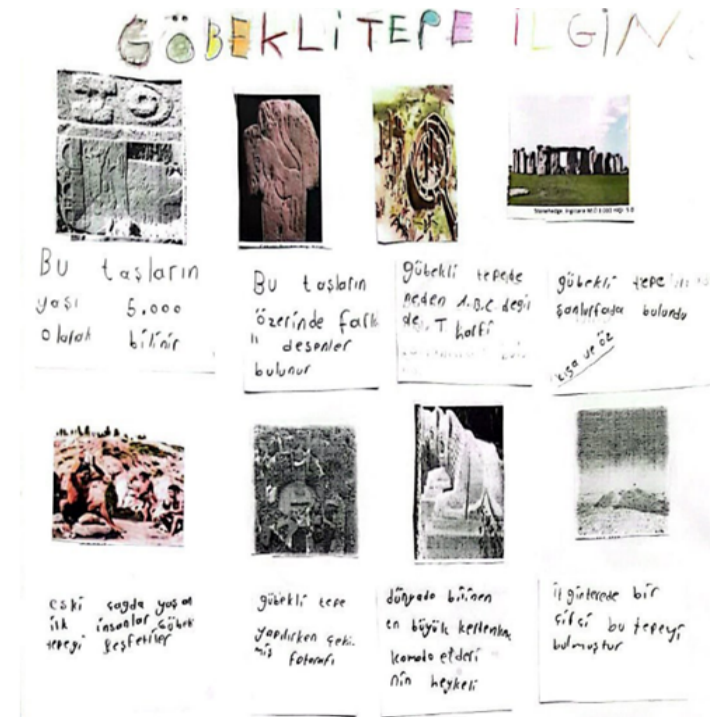 GÖBEKLİTEPE İLGİN
Stonehedge, İngiltere
Bu taşların
yaşı 5.000
olarak bilinir
Bu taşların
özerinde farklı
desenler
bulunur
gübekli tepede
neden A.B.C değil
de, T harfi
gübekli tepe
şanlıurfada bulundu
kısa ve öz
eski çağda yaşan
ilk insanlar Göbek
tepeyi keşfettiler
gübekli tepe
yapılırken çekil
miş fotorafı
dünyada bilinen
en büyük kertenkele
komodo ejderi
nin heykeli
ilginterede bir
çifçi bu tepeyi
bulmuştur